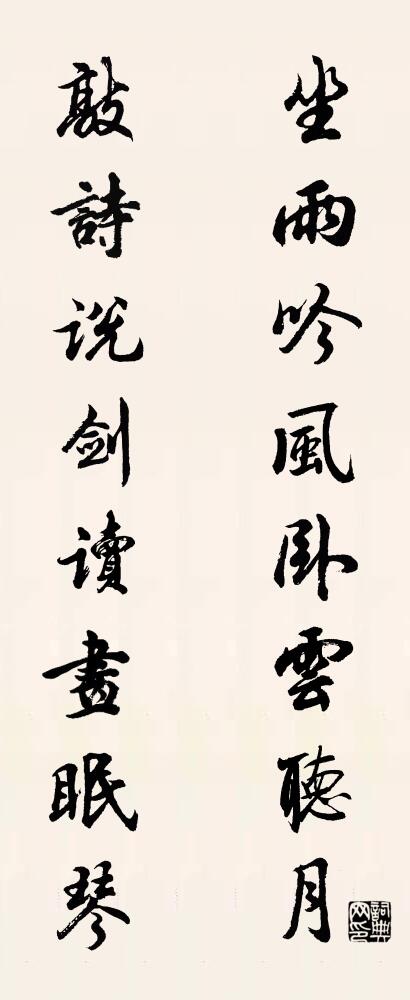 坐雨吟風卧雲聽月
敲詩説剑讀畫眠琴
詞典网印